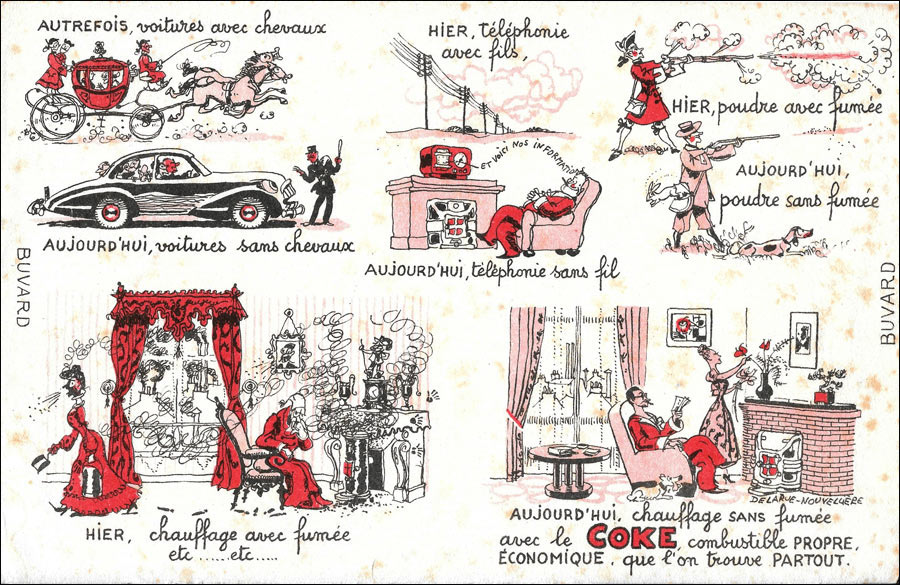 AUTREFOIS, voitures avec chevaux
HIER, téléphonie
avec fils,
HIER, poudre avec fumée
ET VOICI NOS INFORMATIONS
AUJOURD'HUI,
poudre sans fumée
AUJOURD'HUI, voitures sans chevaux
AUJOURD'HUI, téléphonie sans fil
BUVARD
BUVARD
HIER, chauffage avec fumée
etc ...... etc .....
DELARUE-NOUVELLIÈRE
AUJOURD'HUI, chauffage SANS fumée
avec le COKE, combustible PROPRE,
ÉCONOMIQUE, que l'on trouve PARTOUT.